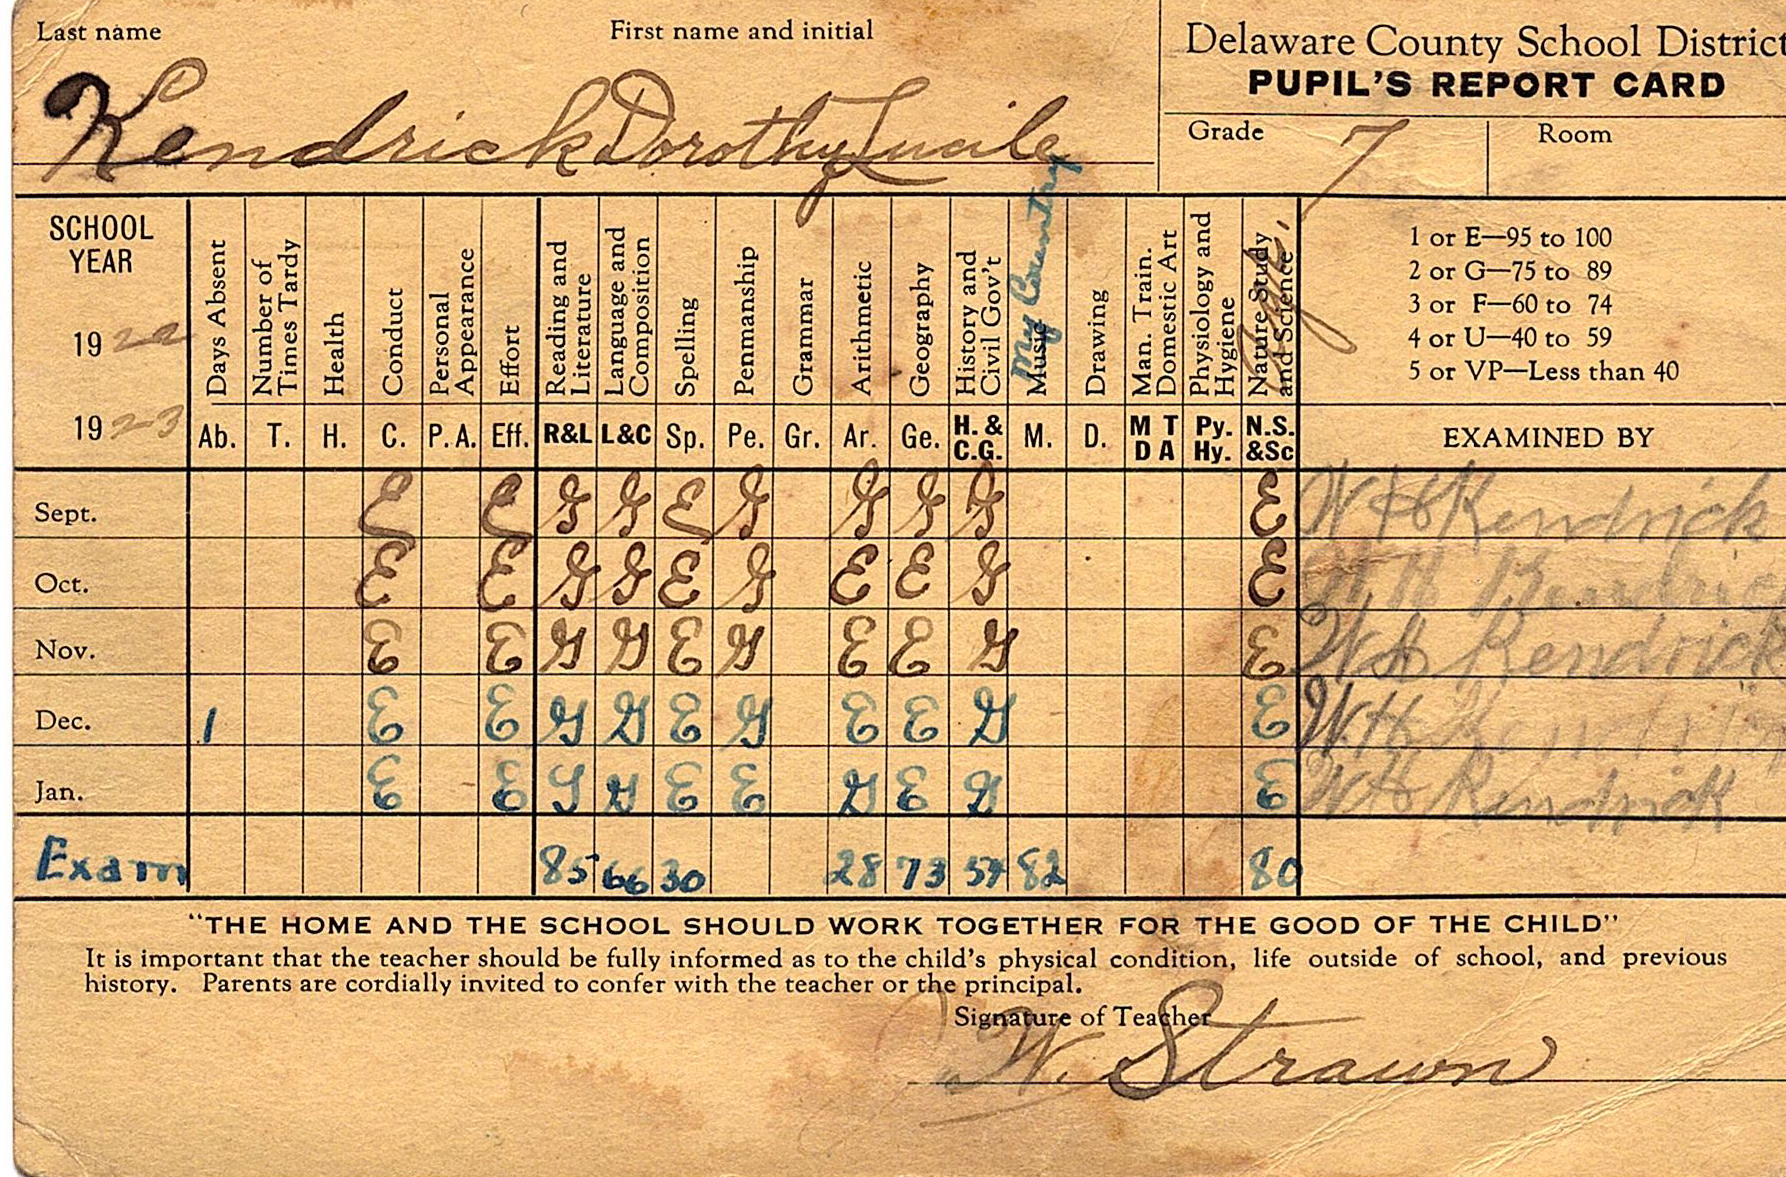 Last name First name and initial
Kendrick Dorothy Lucile
Delaware County School District
PUPIL'S REPORT CARD
Grade 7 Room
SCHOOL YEAR
1922
1923
Days Absent
Number of Times Tardy
Health
Conduct
Personal Appearance
Effort
Reading and Literature
Language and Composition
Spelling
Penmanship
Grammar
Arithmetic
Geography
History and Civil Gov't
Music My Country
Drawing
Man. Train. Domestic Art
Physiology and Hygiene
Nature Study and Science Agr.
1 or E—95 to 100
2 or G—75 to 89
3 or F—60 to 74
4 or U—40 to 59
5 or VP—Less than 40
Ab. T. H. C. P. A. Eff. R&L L&C Sp. Pe. Gr. Ar. Ge. H. & C.G. M. D. M T D A Py. Hy. N.S. &Sc EXAMINED BY
Sept. E E G G E G G G G E W H Kendrick
Oct. E E G G E G E E G E W H Kendrick
Nov. E E G G E G E E G E W H Kendrick
Dec. 1 E E G G E G E E G E W. H. Kendrick
Jan. E E G G E E G E G E W H Kendrick
Exam 85 66 30 28 73 57 82 80
"THE HOME AND THE SCHOOL SHOULD WORK TOGETHER FOR THE GOOD OF THE CHILD"
It is important that the teacher should be fully informed as to the child's physical condition, life outside of school, and previous
history. Parents are cordially invited to confer with the teacher or the principal.
Signature of Teacher
W. Strawn